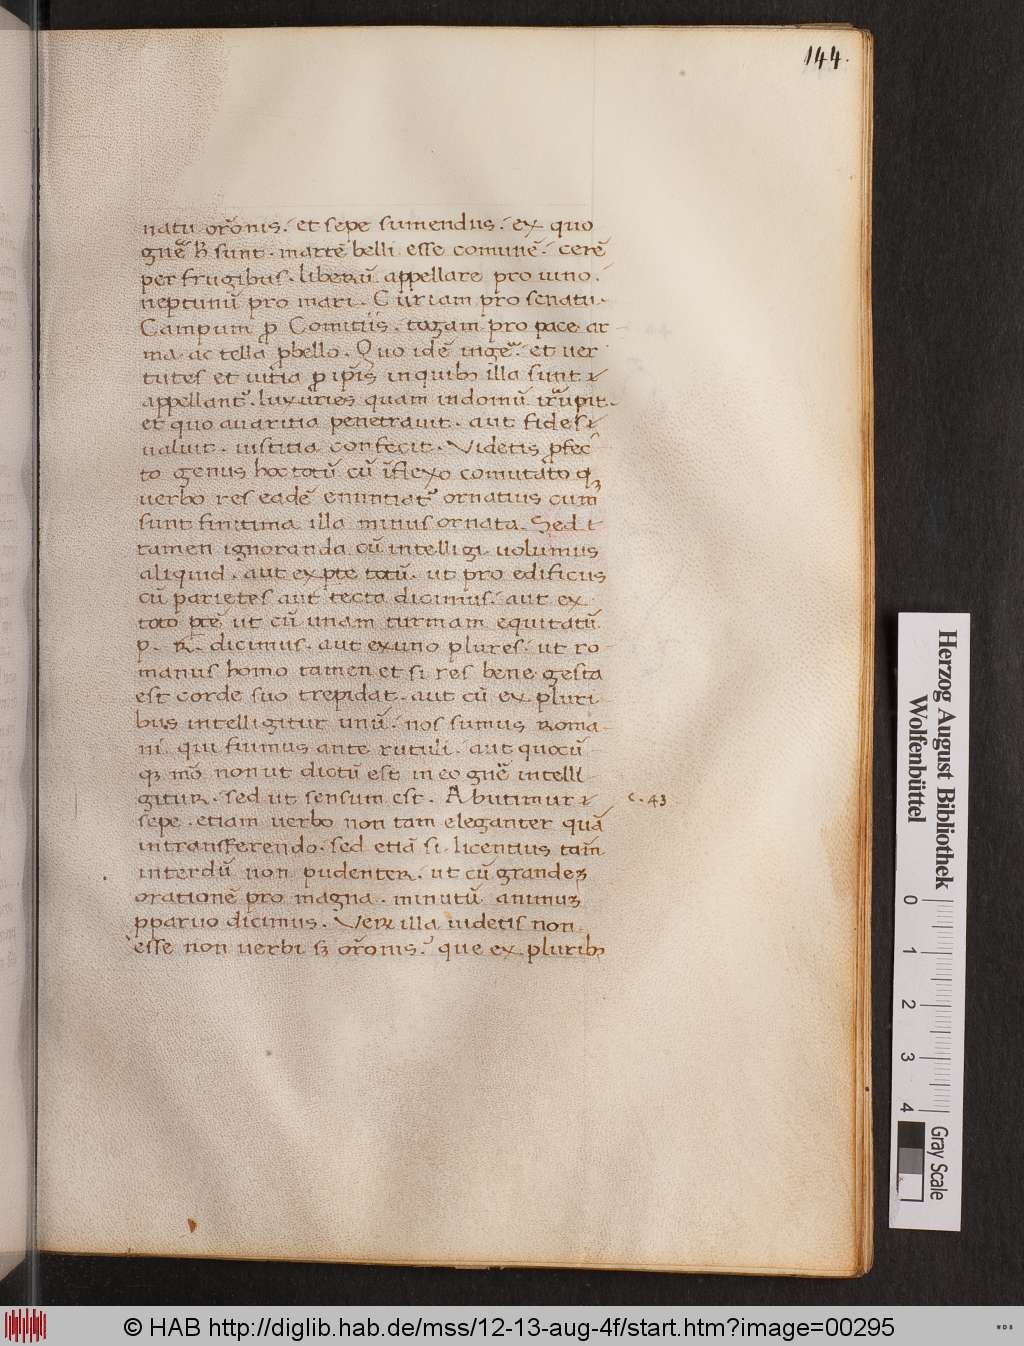 144.
natu orõnis. et sepe sumendus. ex quo
gnẽ h̃ sunt. martẽ belli esse comunẽ. cerẽ
per frugibus. liberũ appellare pro uino.
neptunũ pro mari. Curiam pro senatu.
Campum ꝑ Comitiis. togam pro pace ar
ma. ac tella ꝓbello. Quo idẽ ingẽ. et uer
tutes et uitia ꝓ ip̃is in quibꝫ illa sunt
appellant᷑. luxuries quam indomũ irrupit.
et quo auaritia penetrauit. aut fides
ualuit. iustitia confecit. Videtis ꝓfec
to genus hoc totũ cũ ĩflexo comutato qꝫ
uerbo res eadẽ enuntiat᷑ ornatius cum
sunt finitima illa minus ornata. Sed
tamen ignoranda cũ intelligi uolumus
aliquid. aut ex pte totũ. ut pro edificiis
cũ parietes aut tecta dicimus. aut ex
toto ptẽ ut cũ unam turmam equitatũ
p. R. dicimus. aut ex uno plures. ut ro
manus homo tamen et si res bene gesta
est corde suo trepidat. aut cũ ex pluri
bus intelligitur unũ. nos sumus roma
ni qui fuimus ante rutuli. aut quocũ
qꝫ mõ non ut dictũ est in eo gnẽ intelli
gitur. sed ut sensum est. Abutimur
sepe. etiam uerbo non tam eleganter quã
in transferendo. sed etiã si licentius tam̃
interdũ non pudenter. ut cũ grandeꝫ
orationẽ pro magna. minutũ animuꝫ
ꝓparuo dicimus. Veꝝ illa uidetis non
esse non uerbi sꝫ orõnis. que ex pluribꝫ
c. 43
Herzog August Bibliothek
Wolfenbüttel
0 1 2 3 4
Gray Scale
© HAB http://diglib.hab.de/mss/12-13-aug-4f/start.htm?image=00295